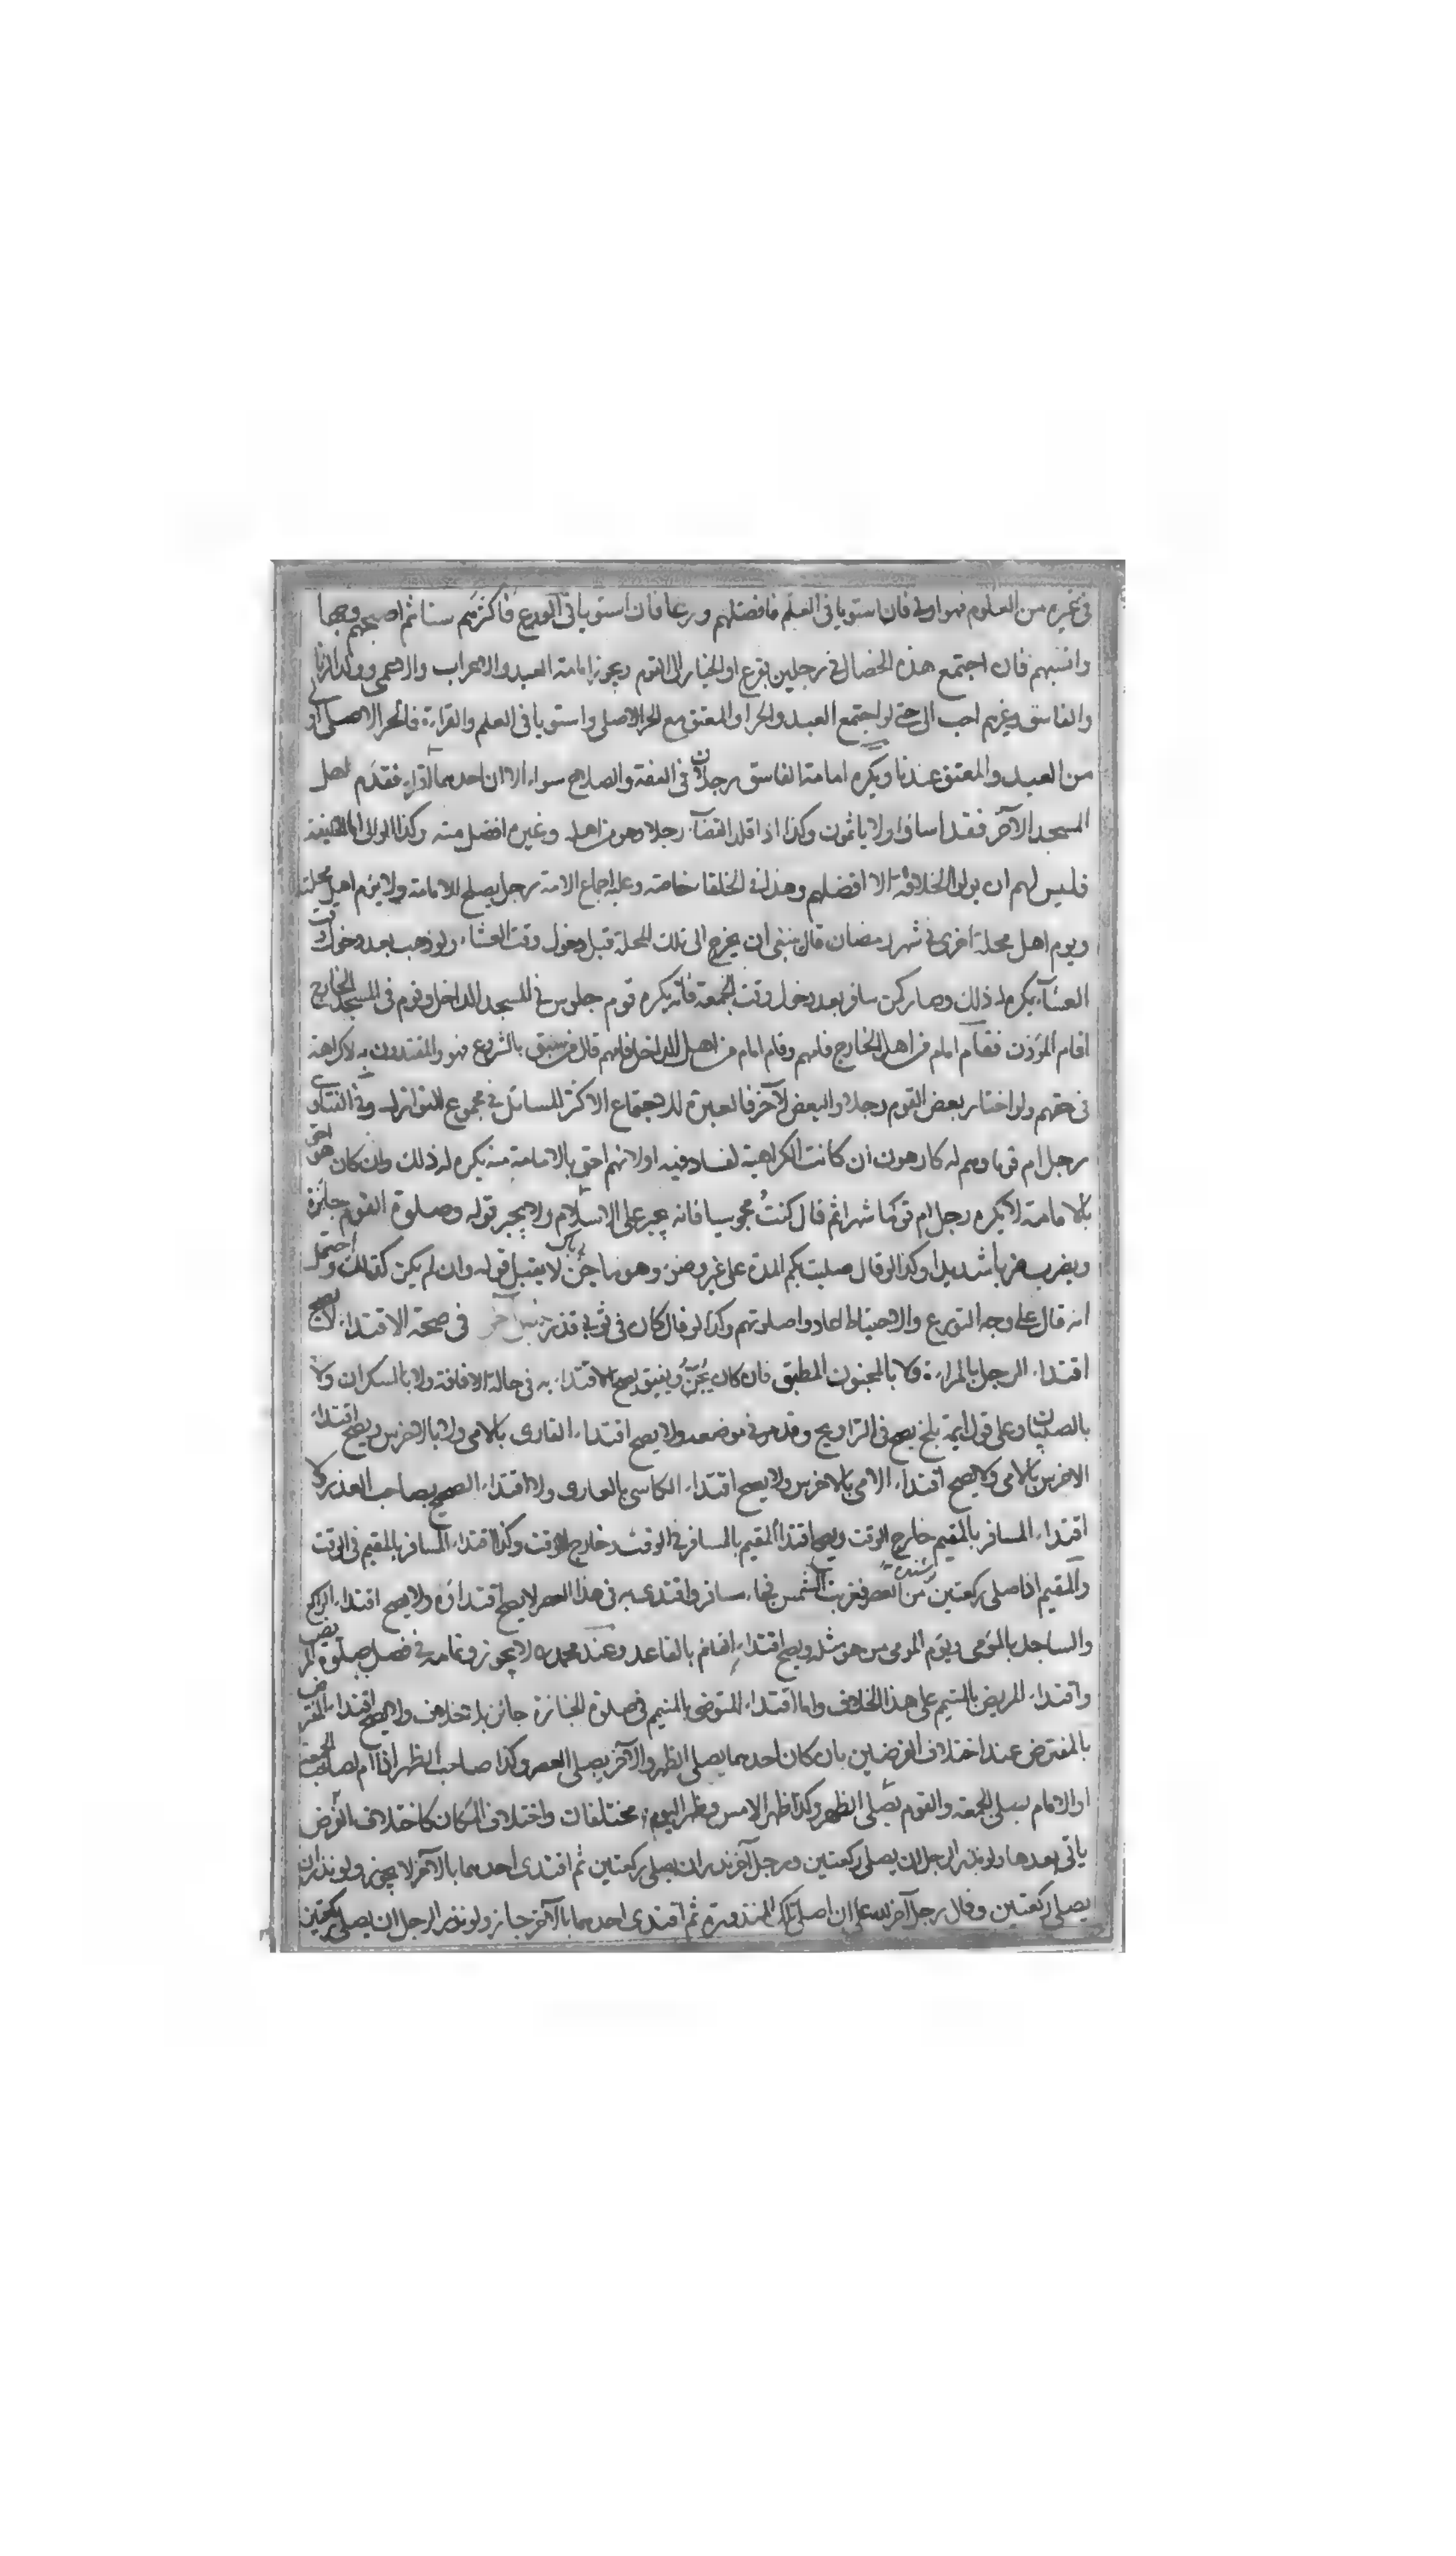 في غيره من العلوم فهو اولى فان استويا في العلم فافضلهم ورعا فان استويا في الورع فاكثرهم سنا ثم اصبحهم وجها
وانسبهم فان اجتمع هذه الخصال في رجلين يقرع او الخيار الى القوم ويجوز امامة العبد والاعراب والاعمى وولد الزنا
والفاسق وغيرهم احب الى حتى لو اجتمع العبد والحر او المعتق مع الحر الاصلى واستويا في العلم والقراءة فالحر الاصلى اولى
من العبد والمعتق عندنا ويكره امامة الفاسق رجلان في الفقه والصلاح سواء الا ان احدهما اقراء فقدم اهل
المسجد الآخر فقد اساؤا ولا ياثمون وكذا اذا قلد القضاء رجلا وهو من اهله وغيره افضل منه وكذا الوالى اما الخليفة
فليس لهم ان يولوا الخلافة الا افضلهم وهذا في الخلفا خاصة وعليه اجماع الامة رجل يصلح للامامة ولا يؤم اهل محلته
ويوم اهل محلة اخرى في شهر رمضان قال ينبغي ان يخرج الى تلك المحلة قبل دخول وقت العشاء ولو ذهب بعد دخول وقت
العشاء يكره له ذلك وصار كمن سافر بعد دخول وقت الجمعة فانه يكره قوم جلوس في المسجد الداخل وقوم في المسجد الخارج
اقام المؤذن فقام امام من اهل الخارج فامهم وقام امام من اهل الداخل فامهم قال من سبق بالشروع فهو والمقتدون به لا كراهة
في حقهم ولو اختار بعض القوم رجلا والبعض لآخر فالعبرة للاجتماع الاكثر المسائل في مجموع النوازل وفي الفتاوى
رجل ام قوما وهم له كارهون ان كانت الكراهية لفساد فيه او لانهم احق بالامامة منه يكره له ذلك وان كان هو احق
بالامامة لا يكره رجل ام قوما شهرا ثم قال كنت مجوسيا فانه يجبر على الاسلام ولا يجبر قوله وصلوة القوم جائزة
ويضرب ضربا شديدا وكذا لو قال صليت بكم المدة على غير وضوء وهو ماجن لا يقبل قوله وان لم يكن كذلك واحتمل
انه قال على وجه التورع والاحتياط اعادوا صلوتهم وكذا لو قال كان في ثوبي قذر في صحة الاقتداء لا يصح
اقتداء الرجل بالمراءة ولا بالمجنون المطبق فان كان يجن ويفيق يصح الاقتداء به في حالة الافاقة ولا بالسكران ولا
بالصبيان وعلى قول ائمة بلخ يصح في التراويح وقد مر في موضعه ولا يصح اقتداء القارى بالامى ولا بالاخرس ويصح اقتداء
الاخرس بالامى ولا يصح اقتداء الامى بالاخرس ولا يصح اقتداء الكاسى بالعارى ولا اقتداء الصحيح بصاحب العذر ولا
اقتداء المسافر بالمقيم خارج الوقت ويصح اقتداء المقيم بالمسافر في الوقت وخارج الوقت وكذا اقتداء المسافر بالمقيم في الوقت
والمقيم اذا صلى ركعتين من العصر فغربت الشمس فجاء مسافر واقتدى به في هذا العصر لا يصح اقتداؤه ولا يصح اقتداء الراكع
والساجد بالمومى ويؤم المومى من هو مثله ويصح اقتداء القائم بالقاعد وعند محمد لا يجوز وتمامه في فصل صلوة المريض
واقتداء المريض بالمتيم على هذا الخلاف واما اقتداء المتوضى بالمتيم في صلوة الجنازة جائز بلا خلاف ولا يصح اقتداء المفترض
بالمفترض عند اختلاف الفرضين بان كان احدهما يصلى الظهر والآخر يصلى العصر وكذا صاحب الظهر اذا ام لصاحب الجمعة
او الامام يصلى الجمعة والقوم يصلى الظهر وكذا ظهر الامس وظهر اليوم مختلفات واختلاف المكان كاختلاف الفرض
ياتى بعدها ولو نذر الرجل ان يصلى ركعتين ورجل آخر نذر ان يصلى ركعتين ثم اقتدى احدهما بالآخر لا يجوز ولو نذر ان
يصلى ركعتين وقال رجل آخر لله على ان اصلى تلك المنذورة ثم اقتدى احدهما بالآخر جاز ولو نذر الرجل ان يصلى ركعتين